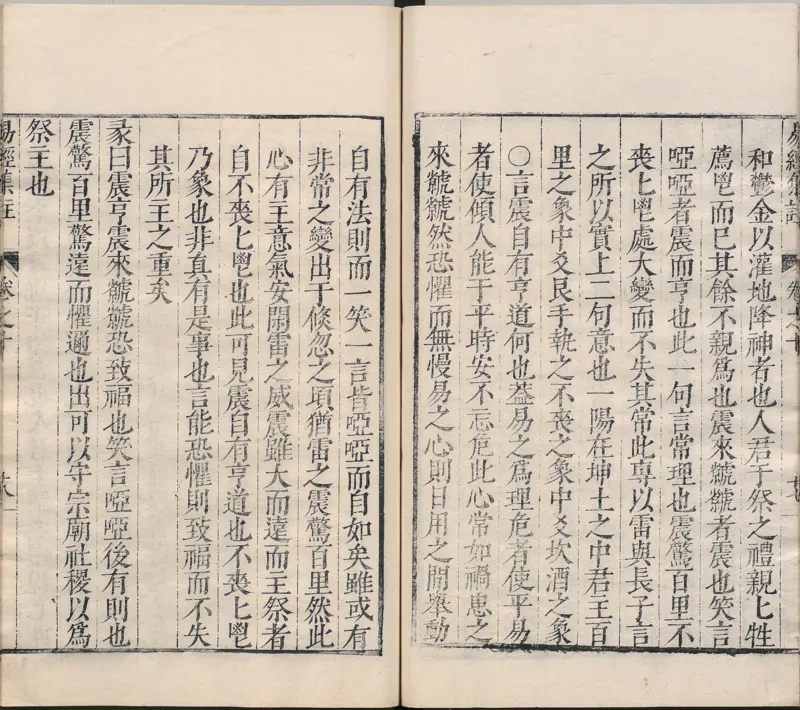 和鬱金以灌地降神者也人君于祭之禮親匕牲
薦鬯而已其餘不親爲也震來虩虩者震也笑言
啞啞者震而亨也此一句言常理也震驚百里不
喪匕鬯處大變而不失其常此專以雷與長子言
之所以實上二句意也一陽在坤土之中君主百
里之象中爻艮手執之不喪之象中爻坎酒之象
○言震自有亨道何也葢易之爲理危者使平易
者使傾人能于平時安不忘危此心常如禍患之
來虩虩然恐懼而無慢易之心則日用之間舉動
自有法則而一笑一言皆啞啞而自如矣雖或有
非常之變出于倏忽之頃猶雷之震驚百里然此
心有主意氣安閑雷之威震雖大而遠而主祭者
自不喪匕鬯也此可見震自有亨道也不喪匕鬯
乃象也非真有是事也言能恐懼則致福而不失
其所主之重矣
彖曰震亨震來虩虩恐致福也笑言啞啞後有則也
震驚百里驚遠而懼邇也出可以守宗廟社稷以爲
祭主也
易經集註 卷之十